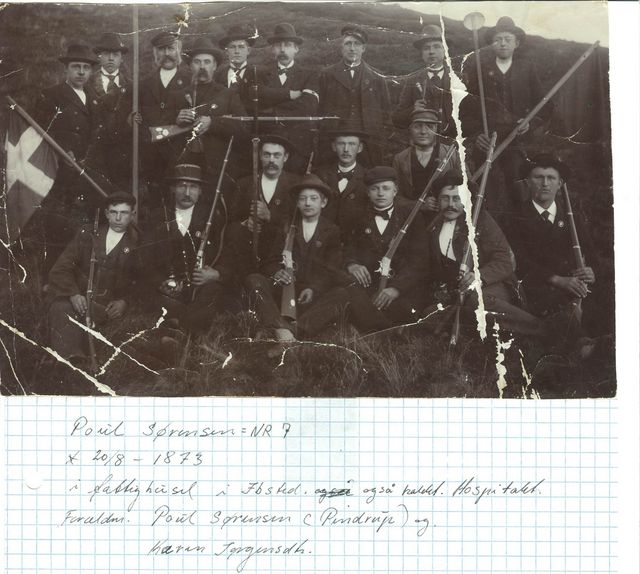 Poul Sørensen = NR 7
* 20/8 - 1873
i fattighuset i Ibsted. også også kaldet. Hospitalet.
Forældre. Poul Sørensen (Pindrup) og.
Karen Jørgensdh.